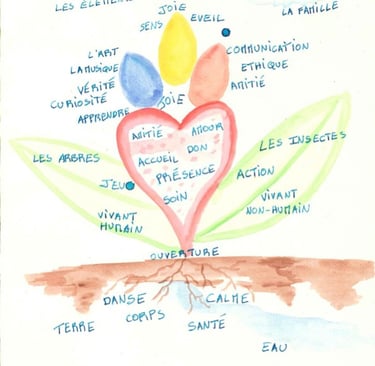 LES ÉLÉMEN
JOIE
LA FAMILLE
SENS
EVEIL
L'ART
LA MUSIQUE
VÉRITÉ
CURIOSITÉ
APPRENDRE
JOIE
COMMUNICATION
ETHIQUE
AMITIÉ
AMITIÉ
AMOUR
ACCUEIL
DON
PRÉSENCE
SOIN
LES ARBRES
JEU
VIVANT
HUMAIN
LES INSECTES
ACTION
VIVANT
NON-HUMAIN
OUVERTURE
DANSE
CALME
CORPS
TERRE
SANTÉ
EAU